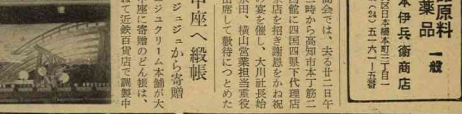 原料
薬品
一般
区日本橋本町二丁目一
本伊兵衛商店
(24)五一六一―五番
商会では、去る廿二日午
三時から高知市本丁筋二
館に四国四県下代理店
店を招き謝恩をかね祝
の宴を催し、大川社長始
田、横山営業担当重役
出席して歓待につとめた
中座へ緞帳
ジュジュから寄贈
ジュクリーム本舗が大
座に寄贈のどん帳は、
て近鉄百貨店で調製中